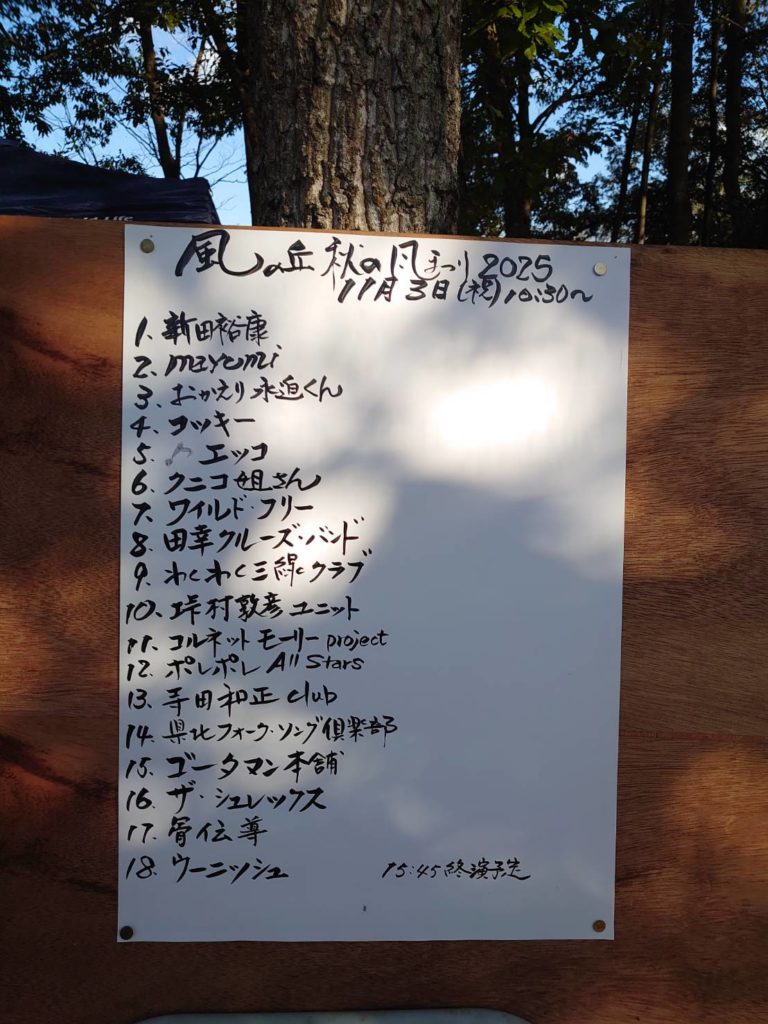 風の丘 秋の風まつり 2025
11月3日(祝)10:30~
1. 新田裕康
2. mayumi
3. おかえり永迫くん
4. コッキー
5. エッコ
6. クニコ姐さん
7. ワイルド・フリー
8. 田幸クルーズ・バンド
9. わくわく三線クラブ
10. 峠村敦彦ユニット
11. コルネットモーリー project
12. ポレポレ All Stars
13. 寺田和正 club
14. 県北フォーク・ソング倶楽部
15. ゴータマン本舗
16. ザ・シュレックス
17. 骨伝導
18. ウーニッシュ
15:45 終演予定